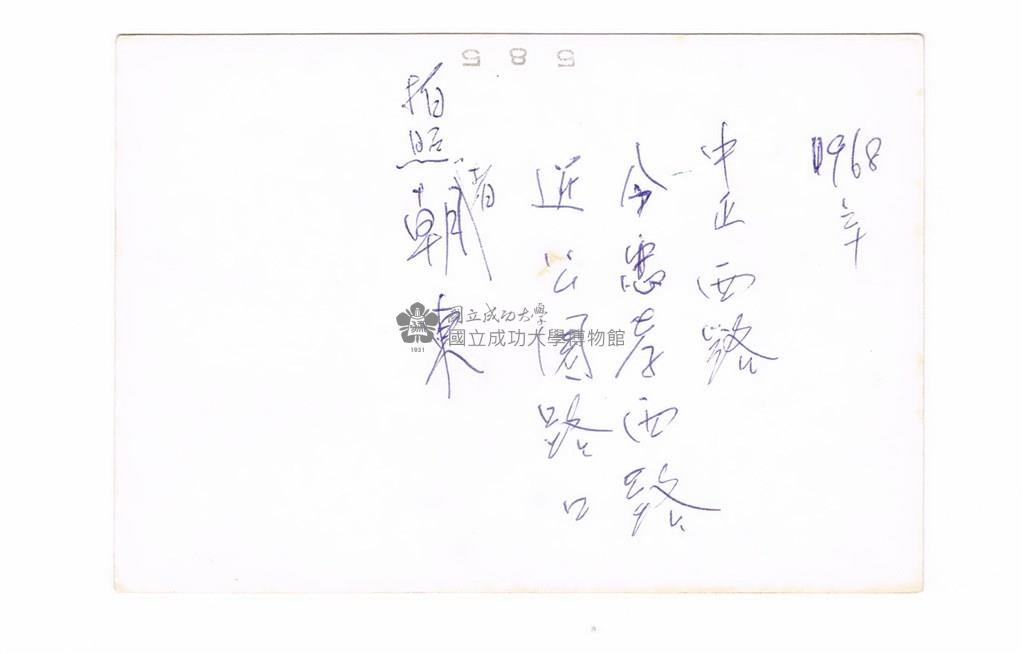 585
1968年
中正西路
今忠孝西路
近公園路口
拍照者朝東
國立成功大學
國立成功大學博物館
1931